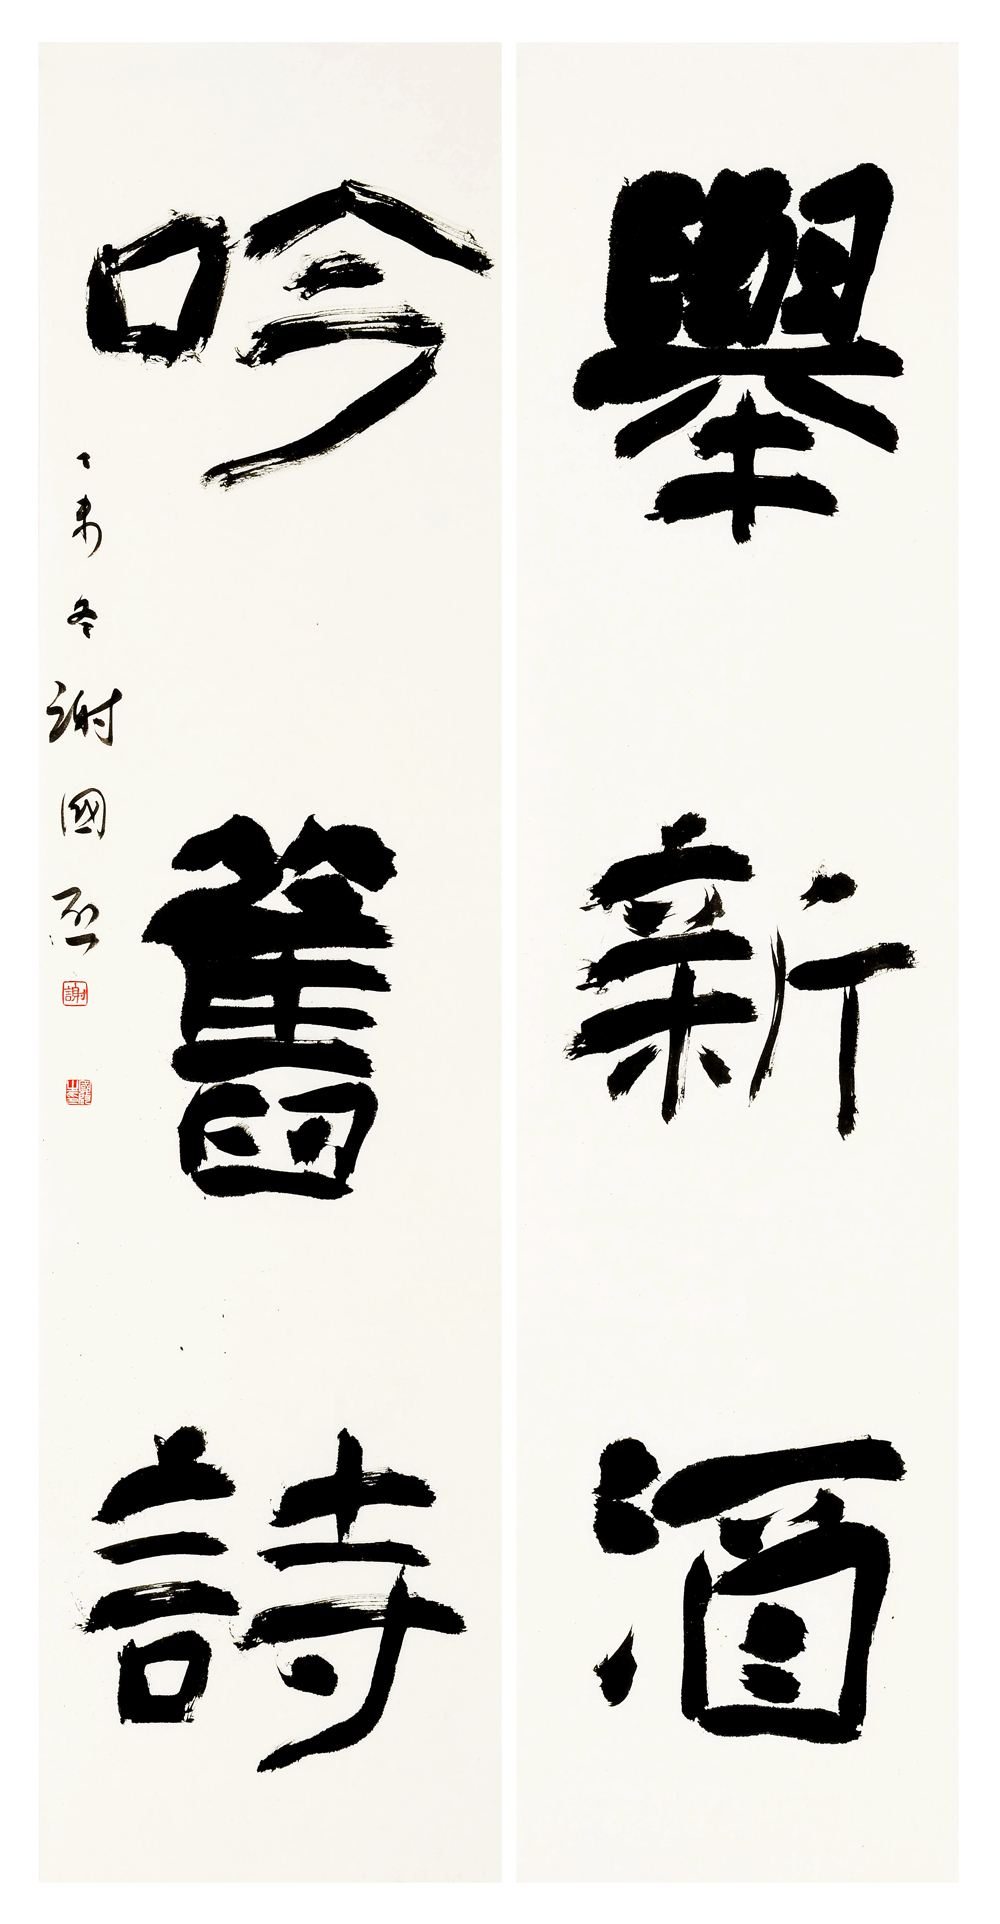 舉新酒
吟舊詩
丁未冬謝國
謝